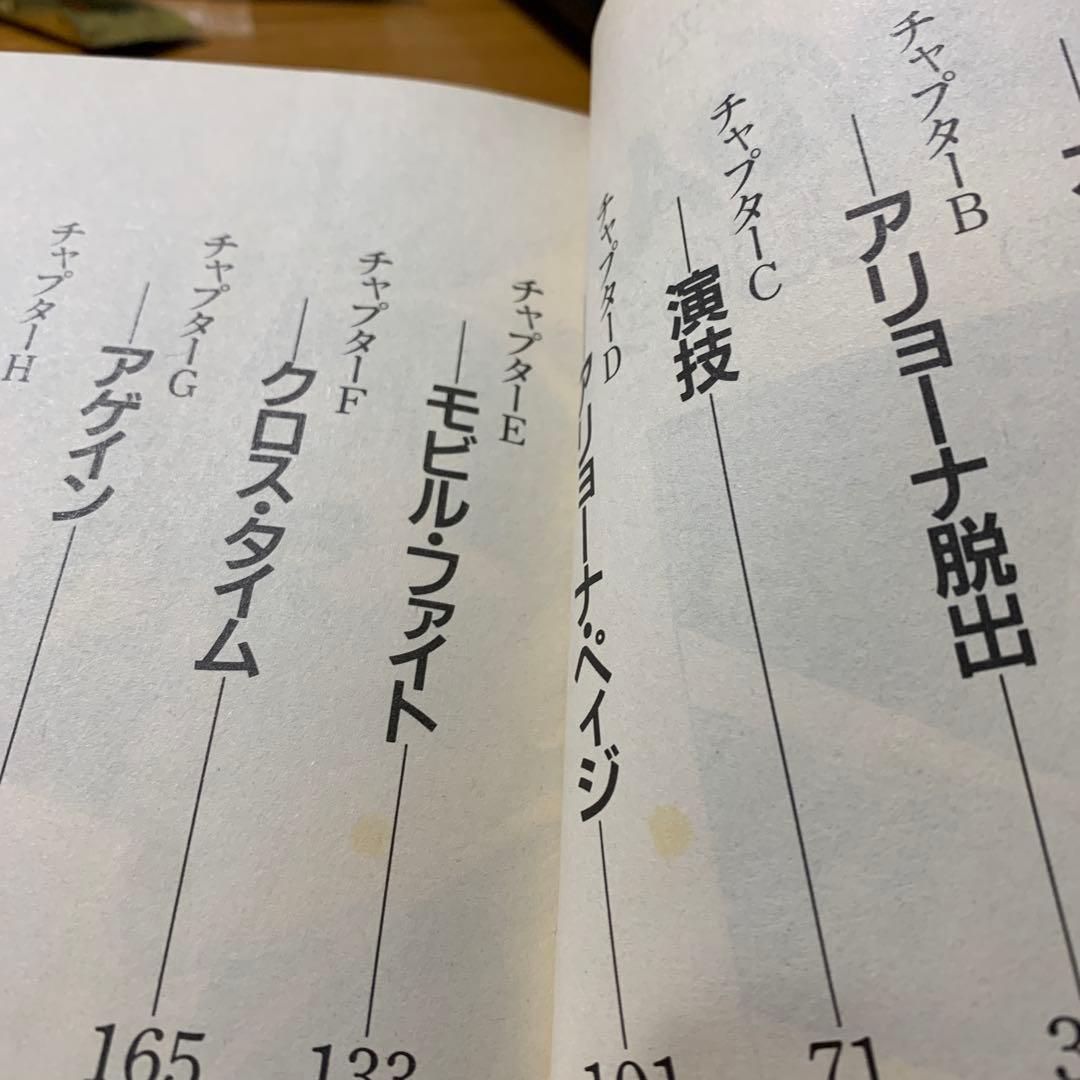 チャプターB
アリョーナ脱出
チャプターC
演技
71
チャプターD
アリョーナ・ペイジ
101
チャプターE
モビル・ファイト
133
チャプターF
クロス・タイム
165
チャプターG
アゲイン
チャプターH